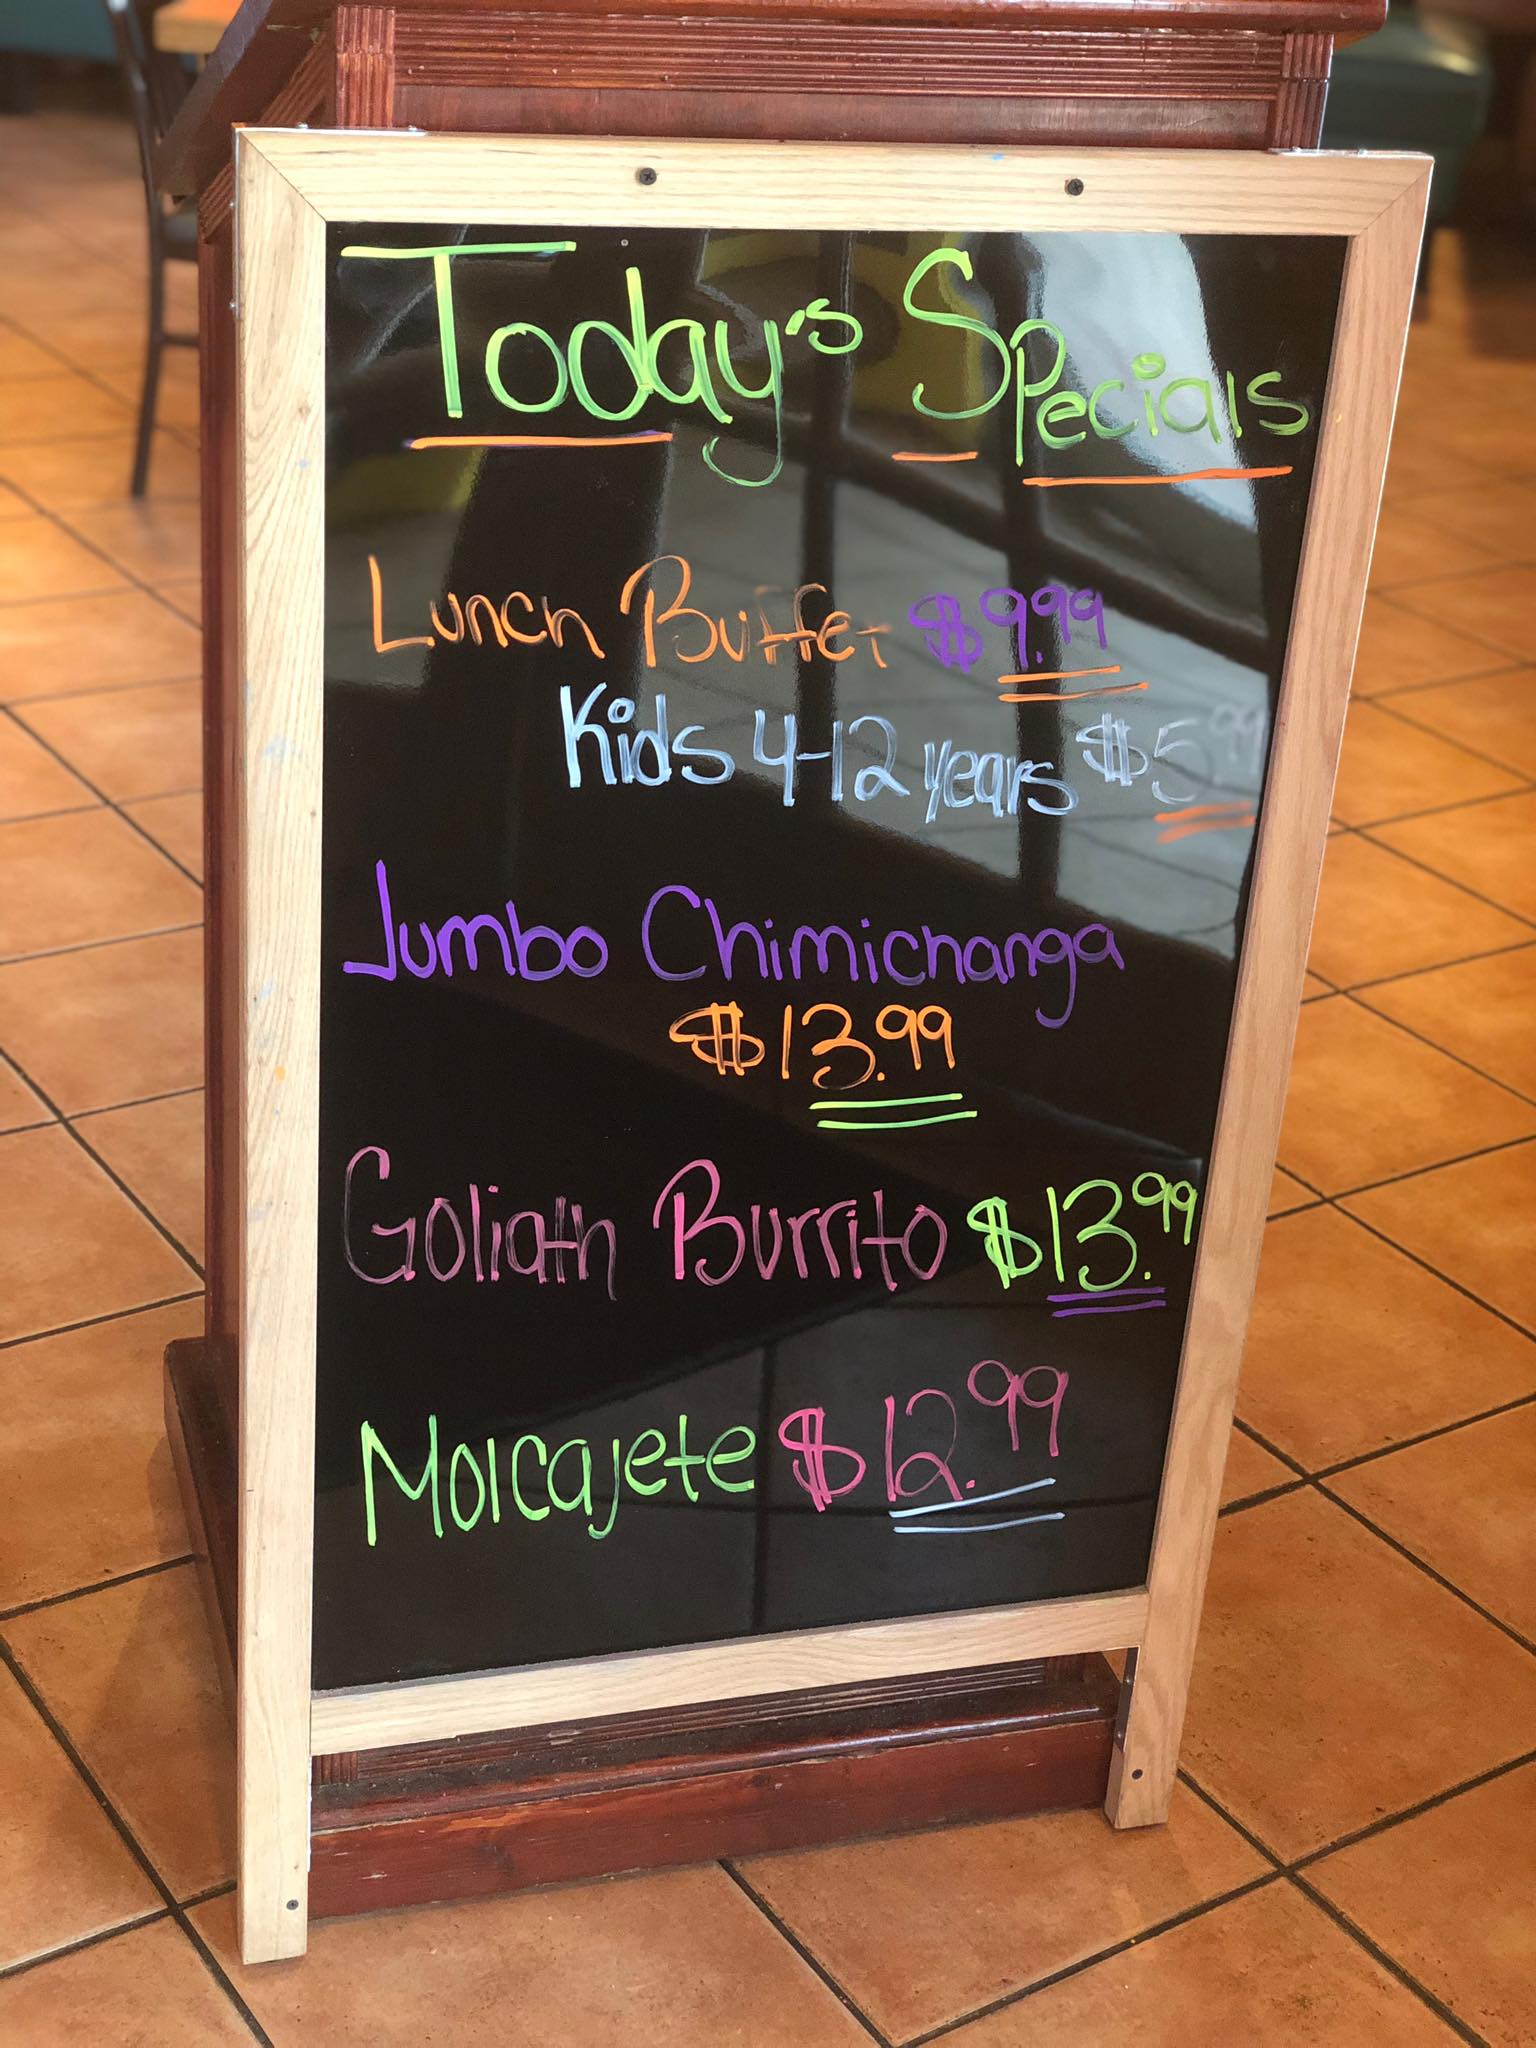 Today's Specials
Lunch Buffet $9.99
Kids 4-12 years $5.99
Jumbo Chimichanga
$13.99
Goliath Burrito $13.99
Molcajete $12.99